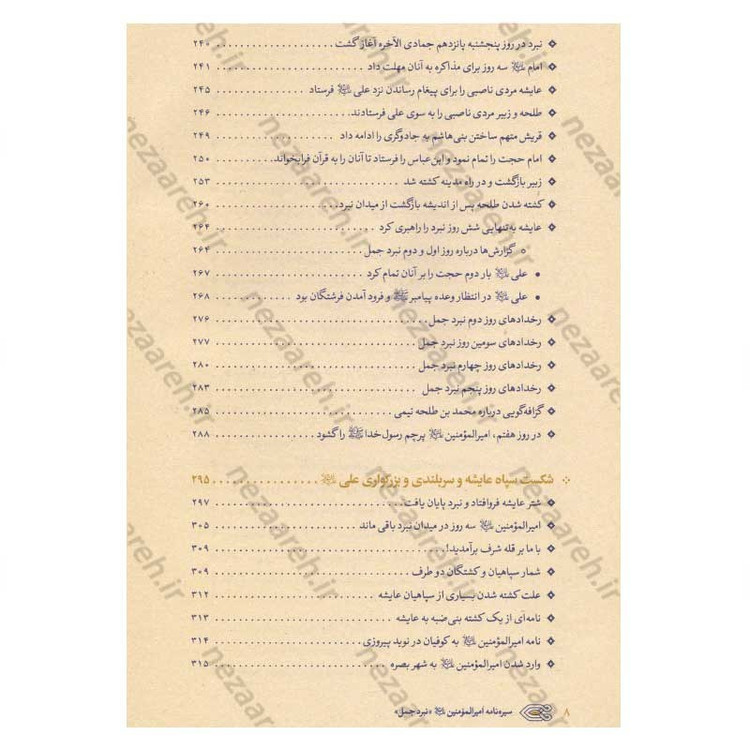 نبرد در روز پنجشنبه پانزدهم جمادی الآخره آغاز گشت .................... ۲۴۰
امام ﷷ سه روز برای مذاکره به آنان مهلت داد .................... ۲۴۱
عایشه مردی ناصبی را برای پیغام رساندن نزد علی ﷷ فرستاد .................... ۲۴۵
طلحه و زبیر مردی ناصبی را به سوی علی فرستادند .................... ۲۴۶
قریش متهم ساختن بنی‌هاشم به جادوگری را ادامه داد .................... ۲۴۹
امام حجت را تمام نمود و ابن‌عباس را فرستاد تا آنان را به قرآن فرابخواند .................... ۲۵۰
زبیر بازگشت و در راه مدینه کشته شد .................... ۲۵۳
کشته شدن طلحه پس از اندیشه بازگشت از میدان نبرد .................... ۲۶۰
عایشه به‌تنهایی شش روز نبرد را راهبری کرد .................... ۲۶۴
گزارش‌ها درباره روز اول و دوم نبرد جمل .................... ۲۶۴
علی ﷷ بار دوم حجت را بر آنان تمام کرد .................... ۲۶۷
علی ﷷ در انتظار وعده پیامبر ﷺ و فرود آمدن فرشتگان بود .................... ۲۶۸
رخدادهای روز دوم نبرد جمل .................... ۲۷۶
رخدادهای سومین روز نبرد جمل .................... ۲۷۷
رخدادهای روز چهارم نبرد جمل .................... ۲۸۰
رخدادهای روز پنجم نبرد جمل .................... ۲۸۳
گزافه‌گویی درباره محمد بن طلحه تیمی .................... ۲۸۵
در روز هفتم، امیرالمؤمنین ﷷ پرچم رسول‌خدا ﷺ را گشود .................... ۲۸۸
شکست سپاه عایشه و سربلندی و بزرگواری علی ﷷ .................... ۲۹۵
شتر عایشه فروافتاد و نبرد پایان یافت .................... ۲۹۷
امیرالمؤمنین ﷷ سه روز در میدان نبرد باقی ماند .................... ۳۰۵
با ما بر قله شرف برآمدید! .................... ۳۰۹
شمار سپاهیان و کشتگان دو طرف .................... ۳۰۹
علت کشته شدن بسیاری از سپاهیان عایشه .................... ۳۱۲
نامه‌ای از یک کشته بنی‌ضبه به عایشه .................... ۳۱۳
نامه امیرالمؤمنین ﷷ به کوفیان در نوید پیروزی .................... ۳۱۴
وارد شدن امیرالمؤمنین ﷷ به شهر بصره .................... ۳۱۵
۸ سیره‌نامه امیرالمؤمنین ﷷ «نبرد جمل»
nezaareh.ir